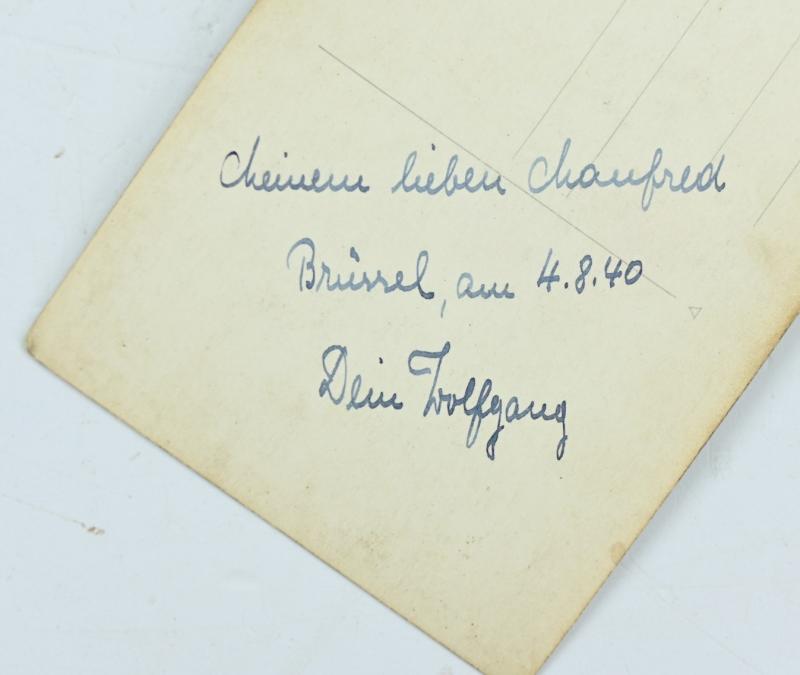 Meinem lieben Manfred
Brüssel, am 4.8.40
Dein Wolfgang